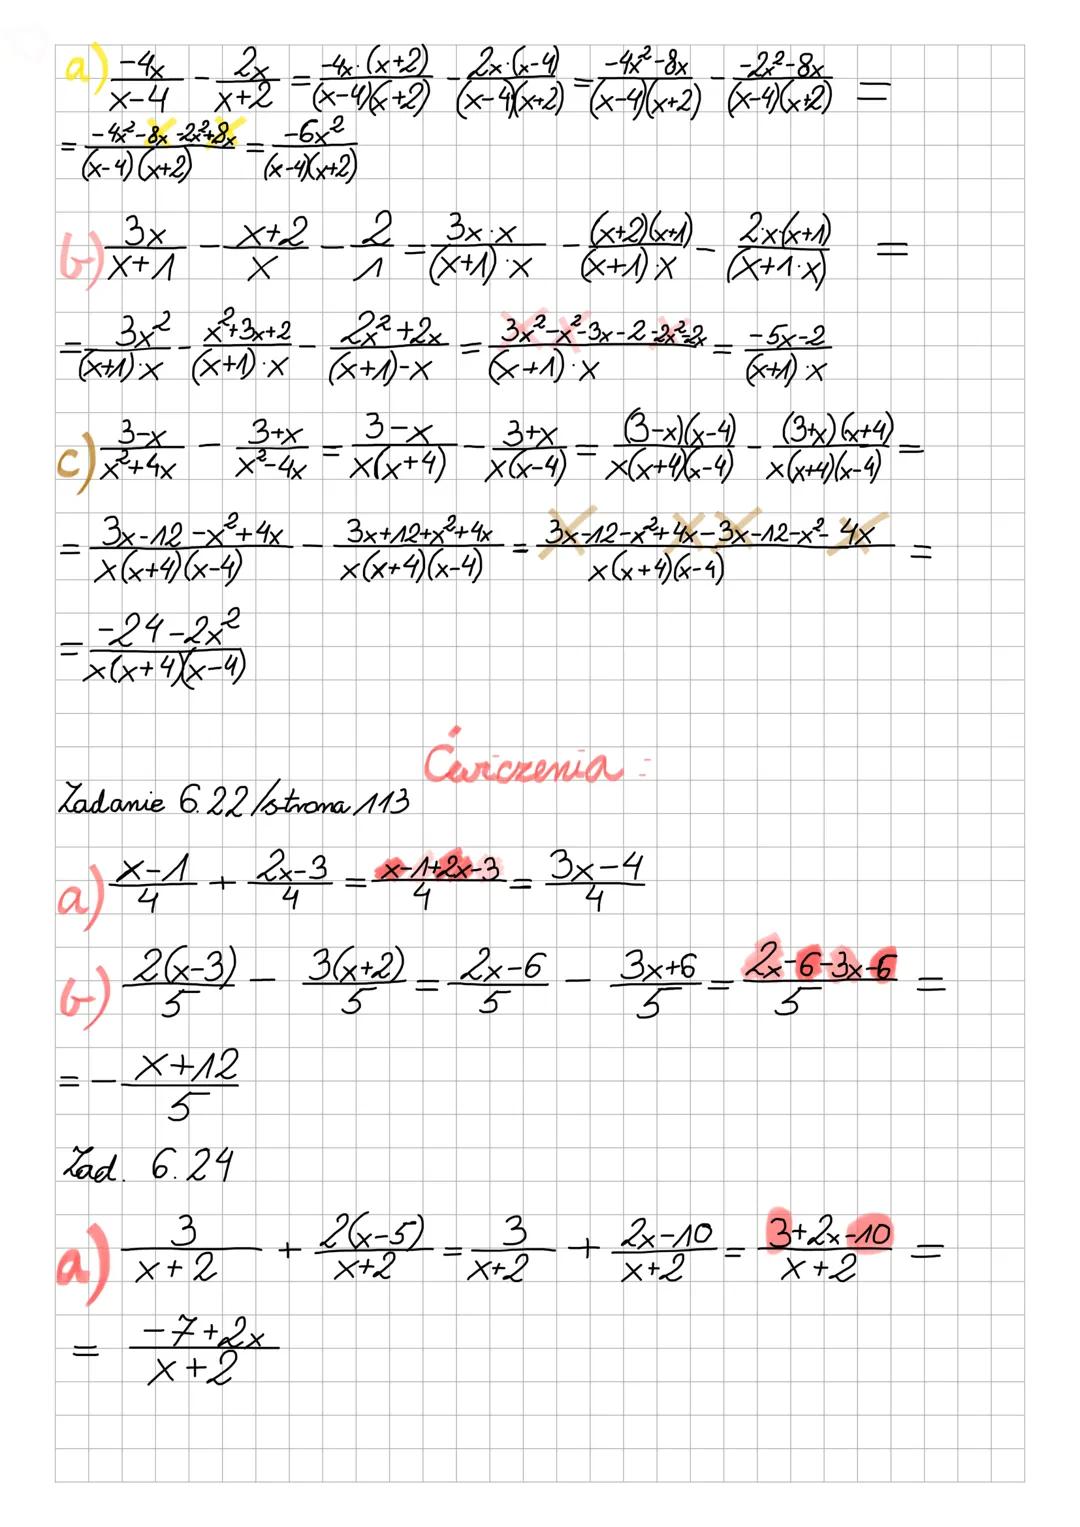 a) -4x/(x-4) - 2x/(x+2) = -4x·(x+2)/(x-4)(x+2) - 2x·(x-4)/(x-4)(x+2) = -4x²-8x/(x-4)(x+2) - -2x²-8x/(x-4)(x+2) =
= -4x²-8x-2x²+8x/(x-4)(x+2) = -6x²/(x-4)(x+2)
b) 3x/(x+1) - x+2/x - 2/1 = 3x·x/(x+1)·x - (x+2)(x+1)/(x+1)·x - 2x(x+1)/(x+1·x) =
= 3x²/(x+1)·x - x²+3x+2/(x+1)·x - 2x²+2x/(x+1)-x = 3x²-x²-3x-2-2x²-2x/(x+1)·x = -5x-2/(x+1)·x
c) 3-x/x²+4x - 3+x/x²-4x = 3-x/x(x+4) - 3+x/x(x-4) = (3-x)(x-4)/x(x+4)(x-4) - (3+x)(x+4)/x(x+4)(x-4) =
= 3x-12-x²+4x/x(x+4)(x-4) - 3x+12+x²+4x/x(x+4)(x-4) = 3x-12-x²+4x-3x-12-x²-4x/x(x+4)(x-4) =
= -24-2x²/x(x+4)(x-4)
Ćwiczenia :
Zadanie 6.22/strona 113
a) x-1/4 + 2x-3/4 = x-1+2x-3/4 = 3x-4/4
b) 2(x-3)/5 - 3(x+2)/5 = 2x-6/5 - 3x+6/5 = 2x-6-3x-6/5 =
= - x+12/5
Zad. 6.24
a) 3/x+2 + 2(x-5)/x+2 = 3/x+2 + 2x-10/x+2 = 3+2x-10/x+2 =
= -7+2x/x+2